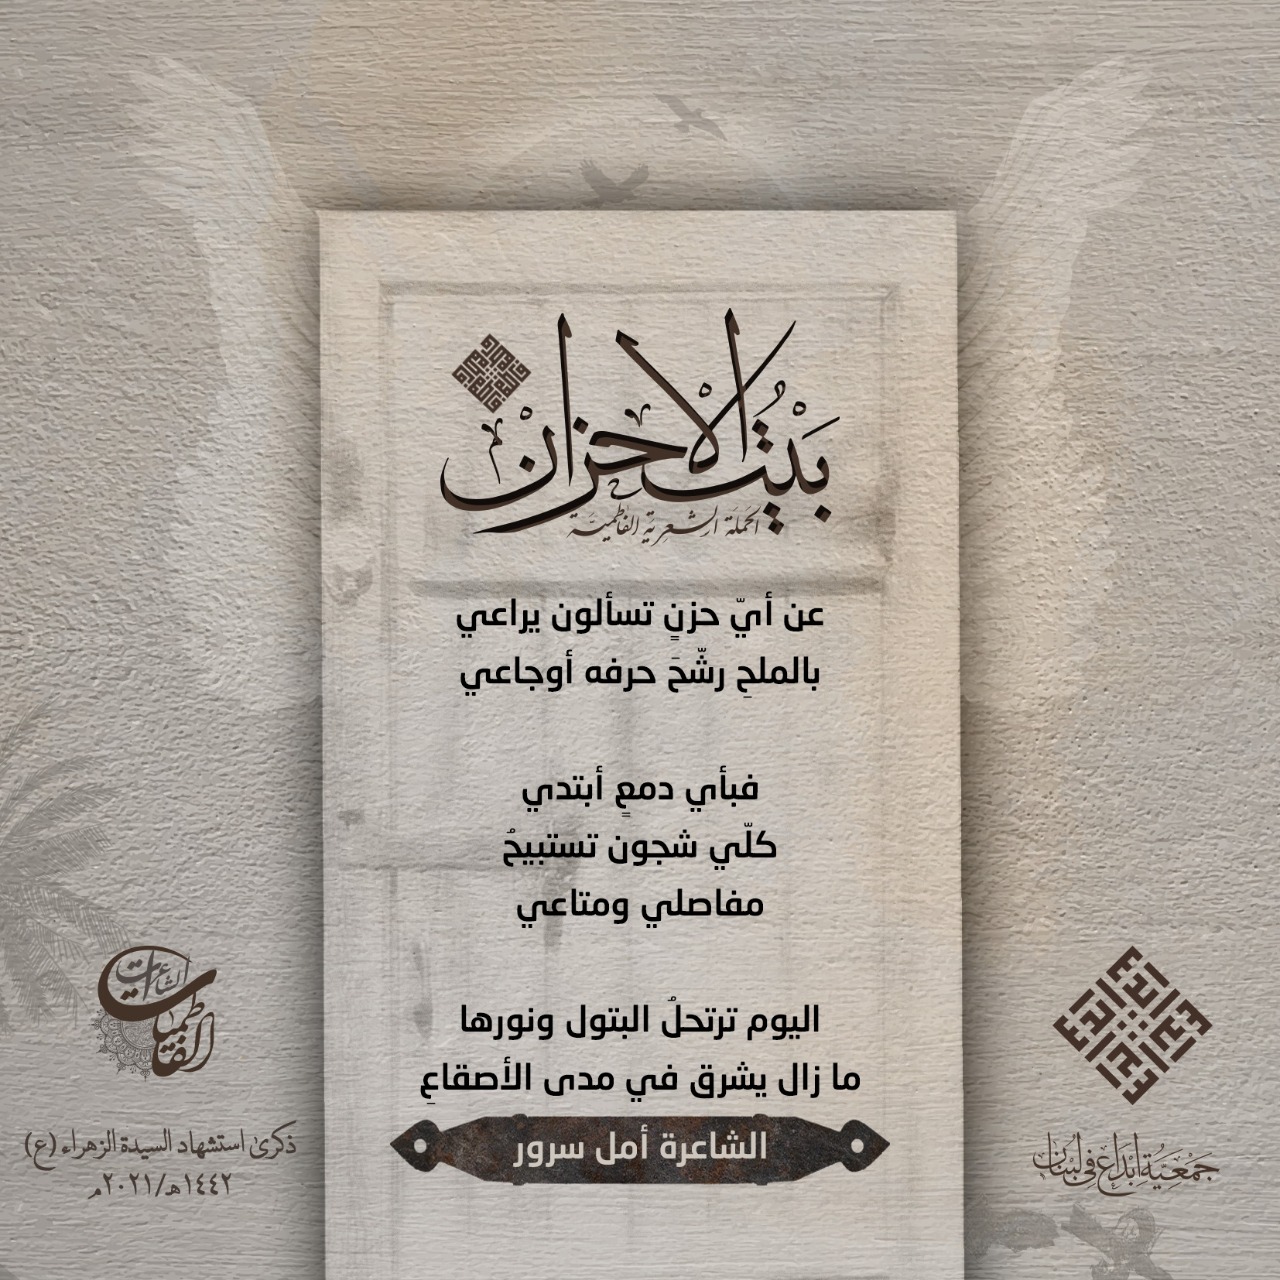 بَيْتُ الاحزانْ
الحملة الشعرية الفاطميّة
عن أيّ حزنٍ تسألون يراعي
بالملحِ رشّحَ حرفه أوجاعي
فبأي دمعٍ أبتدي
كلّي شجون تستبيحُ
مفاصلي ومتاعي
اليوم ترتحلُ البتول ونورها
ما زال يشرق في مدى الأصقاعِ
الشاعرة أمل سرور
الشاعرات
الفاطميات
ذكرى استشهاد السيدة الزهراء (ع)
١٤٤٢هـ/٢٠٢١م
جمعية ابداع في لبنان